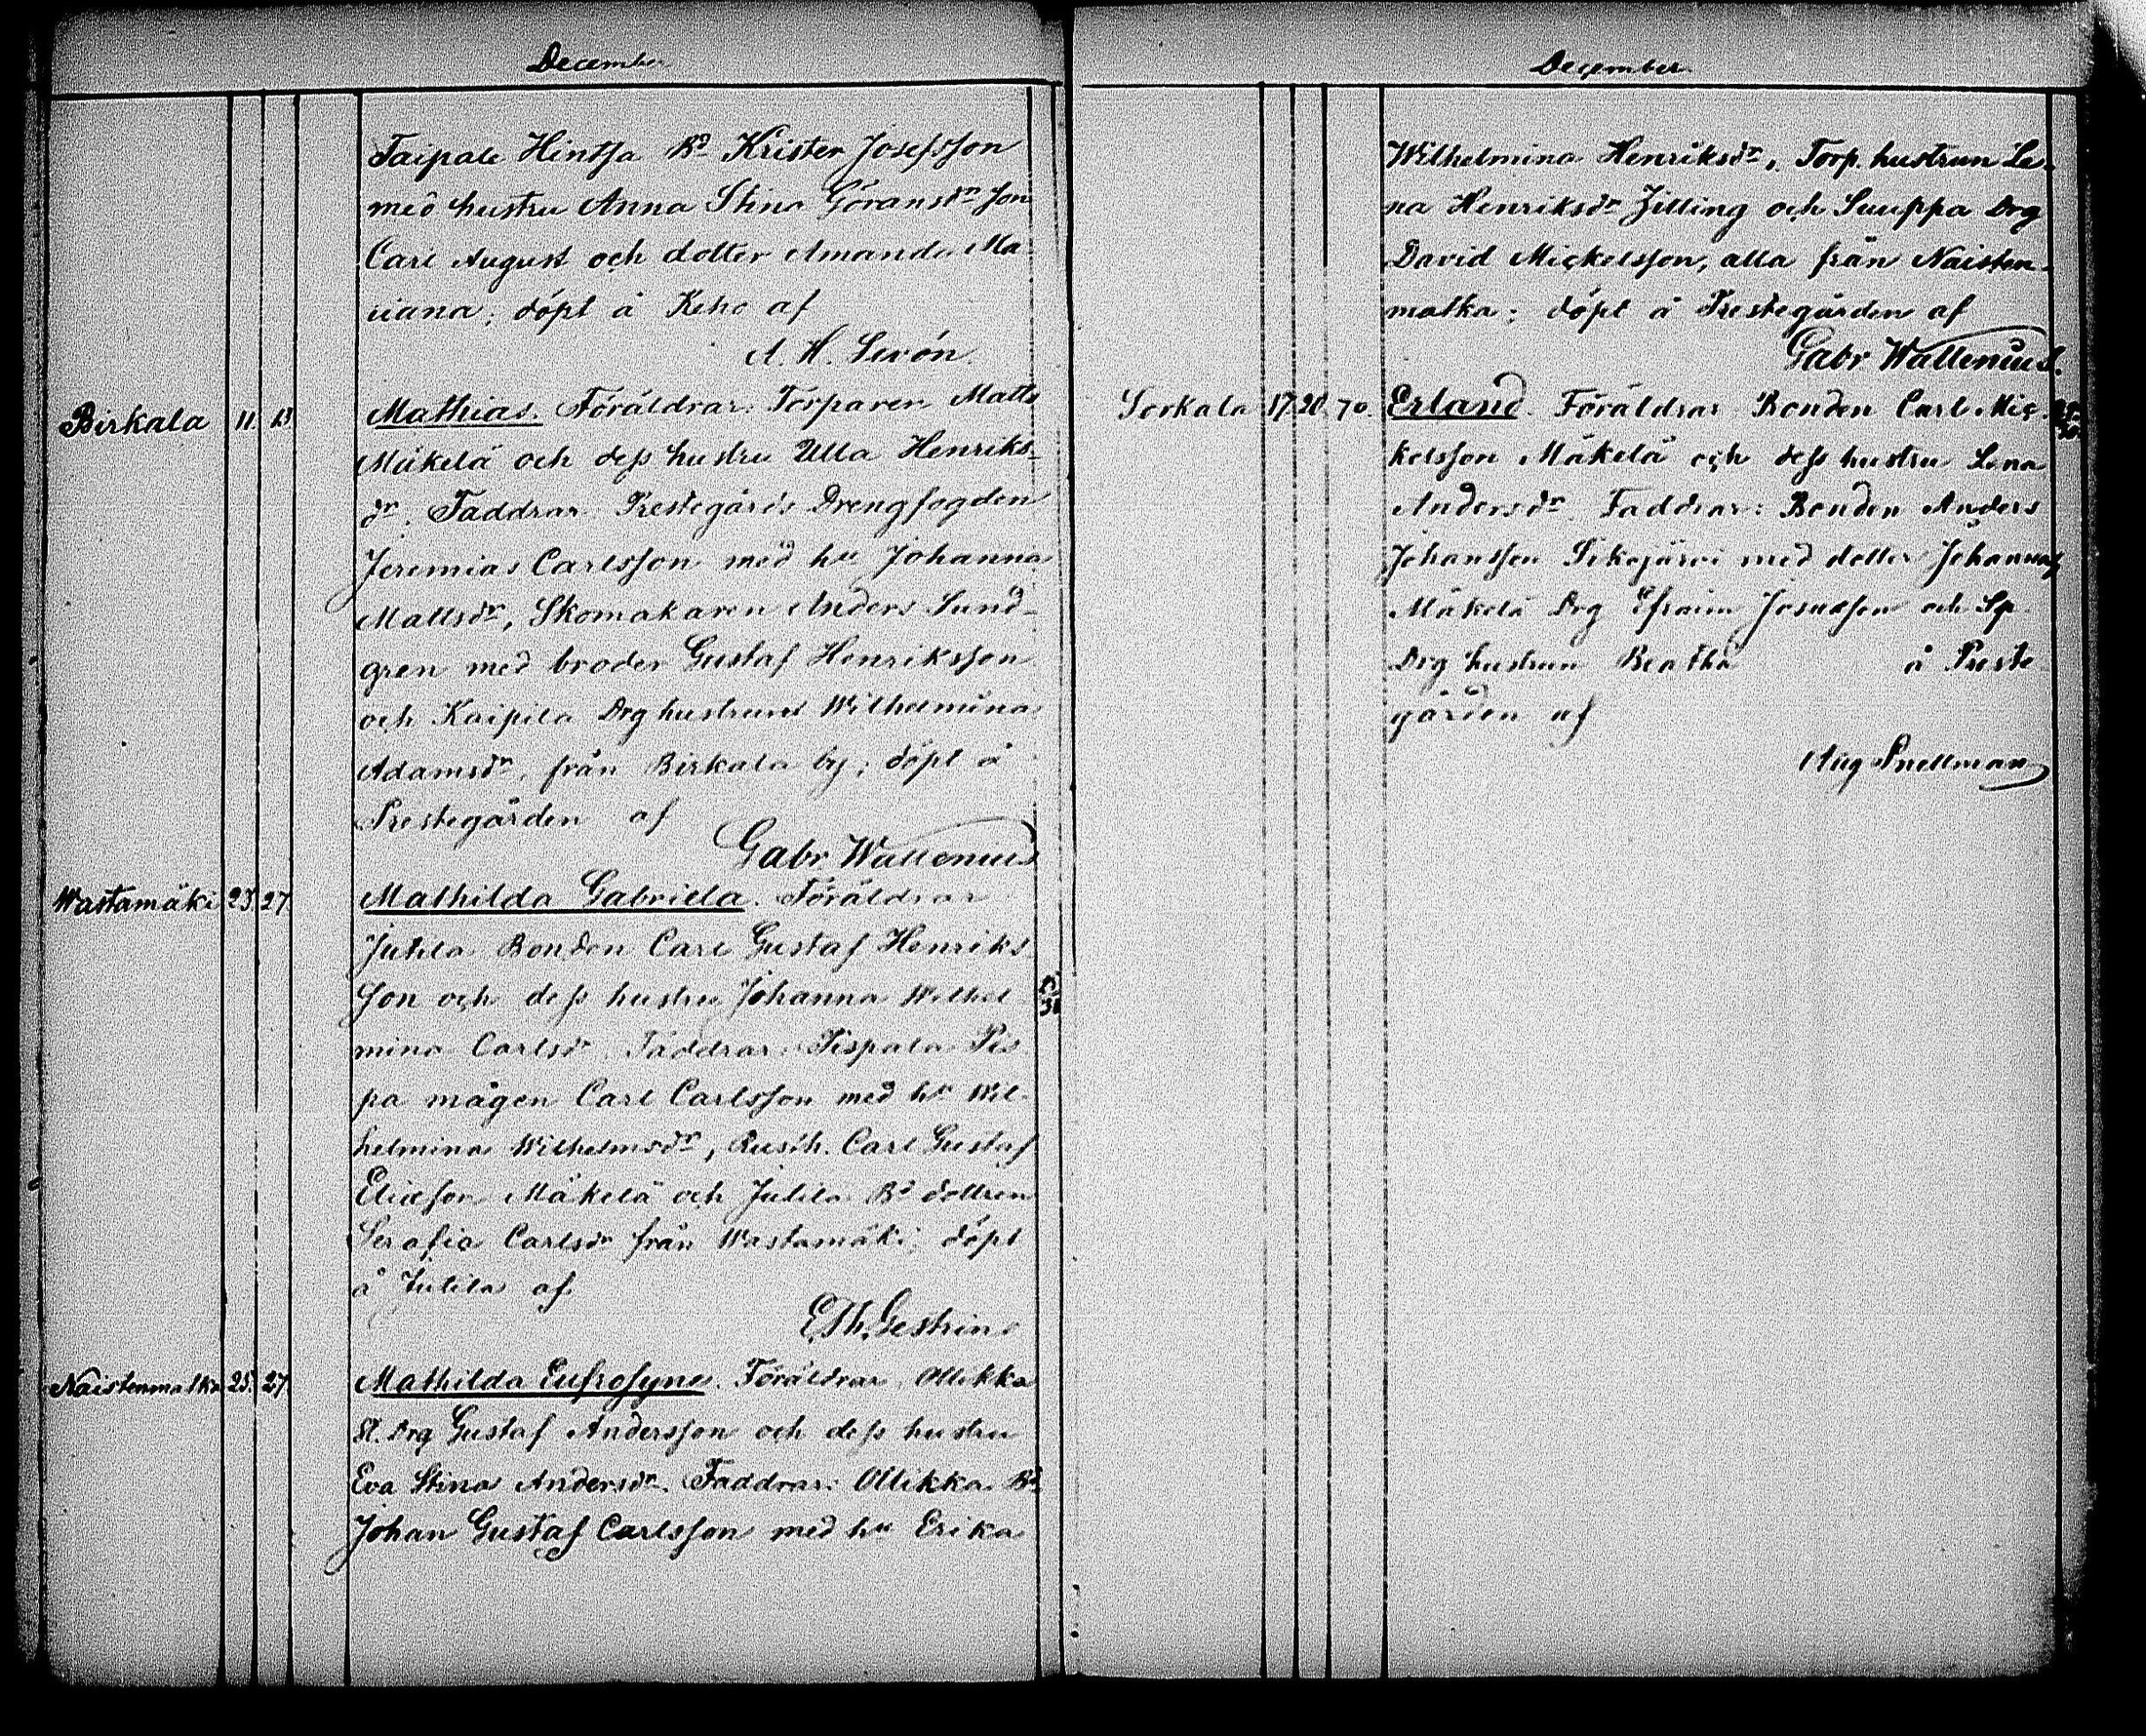 December
Taipale Hintsa Bd Krister Josefsson
med hustru Anna Stina Göransdr son
Carl August och dotter Amanda Ma-
riana; döpt å Keho af
A. H. Servón
Birkala 11. 13 Mathias. Föräldrar: Torparen Matts
Mäkelä och dess hustru Ulla Henriks-
dr. Faddrar: Prestegårds Drengfogden
Jeremias Carlsson med hu Johanna
Mattsdr, Skomakaren Anders Sund-
gren med broder Gustaf Henriksson
och Kaipila Drghustrun Wilhelmina
Adamsdr, från Birkala by; döpt å
Prestegården af
Gabr Wallenius
Wastamäki 23. 27 Mathilda Gabriela. Föräldrar
Jutila Bonden Carl Gustaf Henriks
son och dess hustru Johanna Wilhel
mina Carlsdr. Faddrar: Pispala Pis
pa mågen Carl Carlsson med hu Wil-
helmina Wilhelmsdr, Rusth. Carl Gustaf
Eliasson Mäkelä och Jutila Bd dottren
Serafia Carlsdr från Wastamäki; döpt
å Jutila af
E. Th. Gestrin
Naistenmatka 25. 27 Mathilda Eufrosyne. Föräldrar Ollikka
St. Drg Gustaf Andersson och dess hustru
Eva Stina Andersdr. Faddrar: Ollikka Bd
Johan Gustaf Carlsson med hu Erika
December
Wilhelmina Henriksdr, Torp. hustrun Le-
na Henriksdr Zilling och Suuppa Drg
David Mickelsson, alla från Naisten-
matka; döpt å Prestegården af
Gabr Wallenius.
Sorkala 17. 20. 70. Erland. Föräldrar Bonden Carl Mic-
kelsson Mäkelä och dess hustru Lena
Andersdr. Faddrar: Bonden Anders
Johansson Sikojärvi med dotter Johanna,
Mäkelä Drg Efraim Josuasson och Sp
Drg hustrun Beatha å Preste
gården af
Aug Snellman